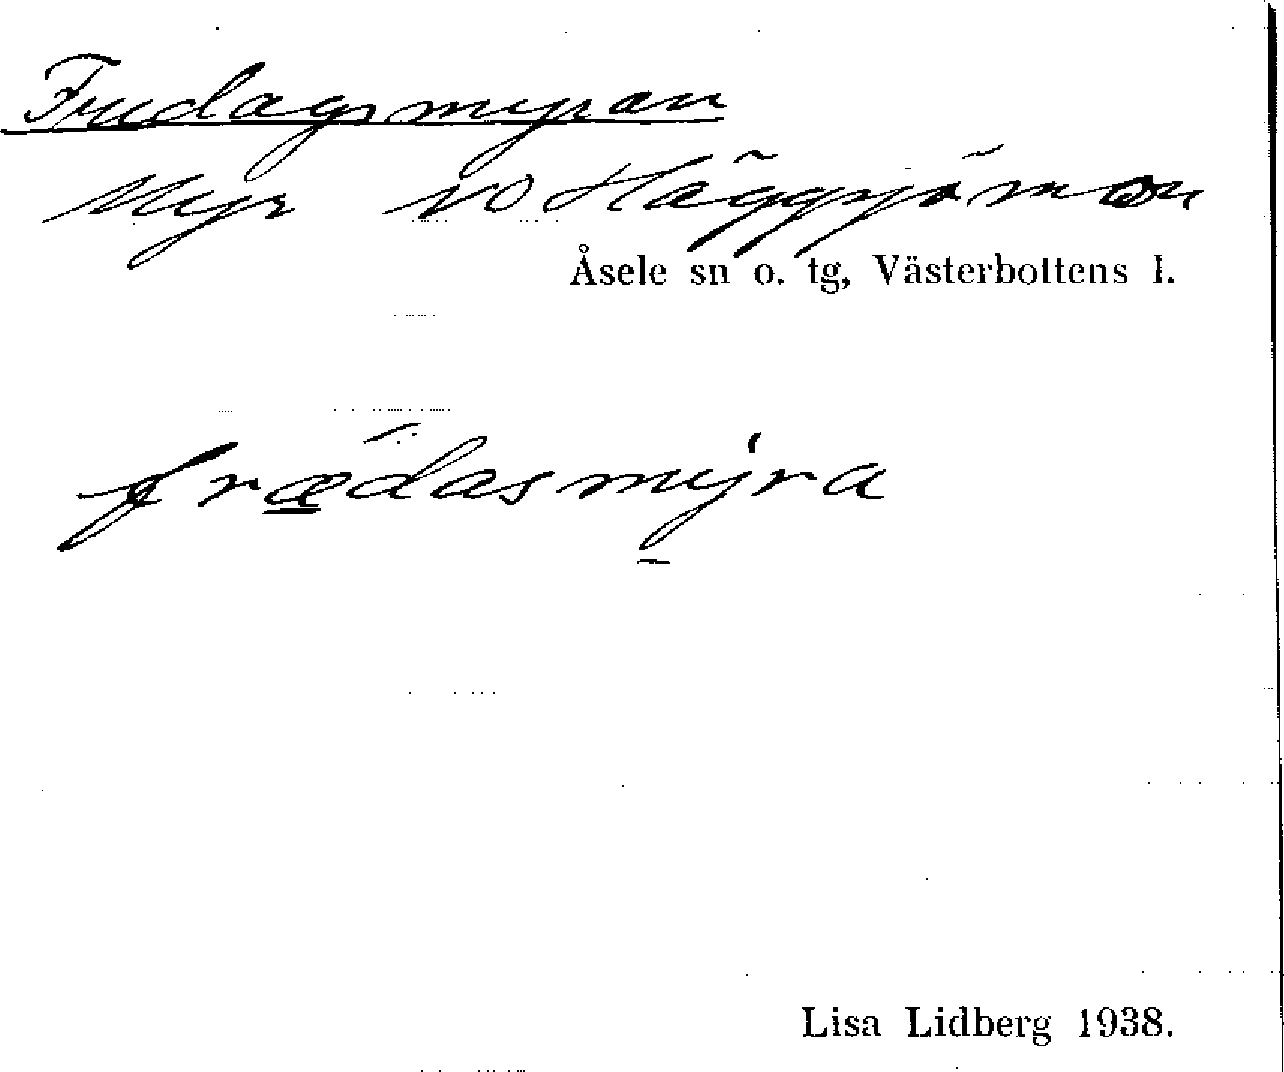 Fredagsmyran
Myr NO Häggsjömon
Åsele sn o. tg, Västerbottens l.
frædasmyra
Lisa Lidberg 1938.